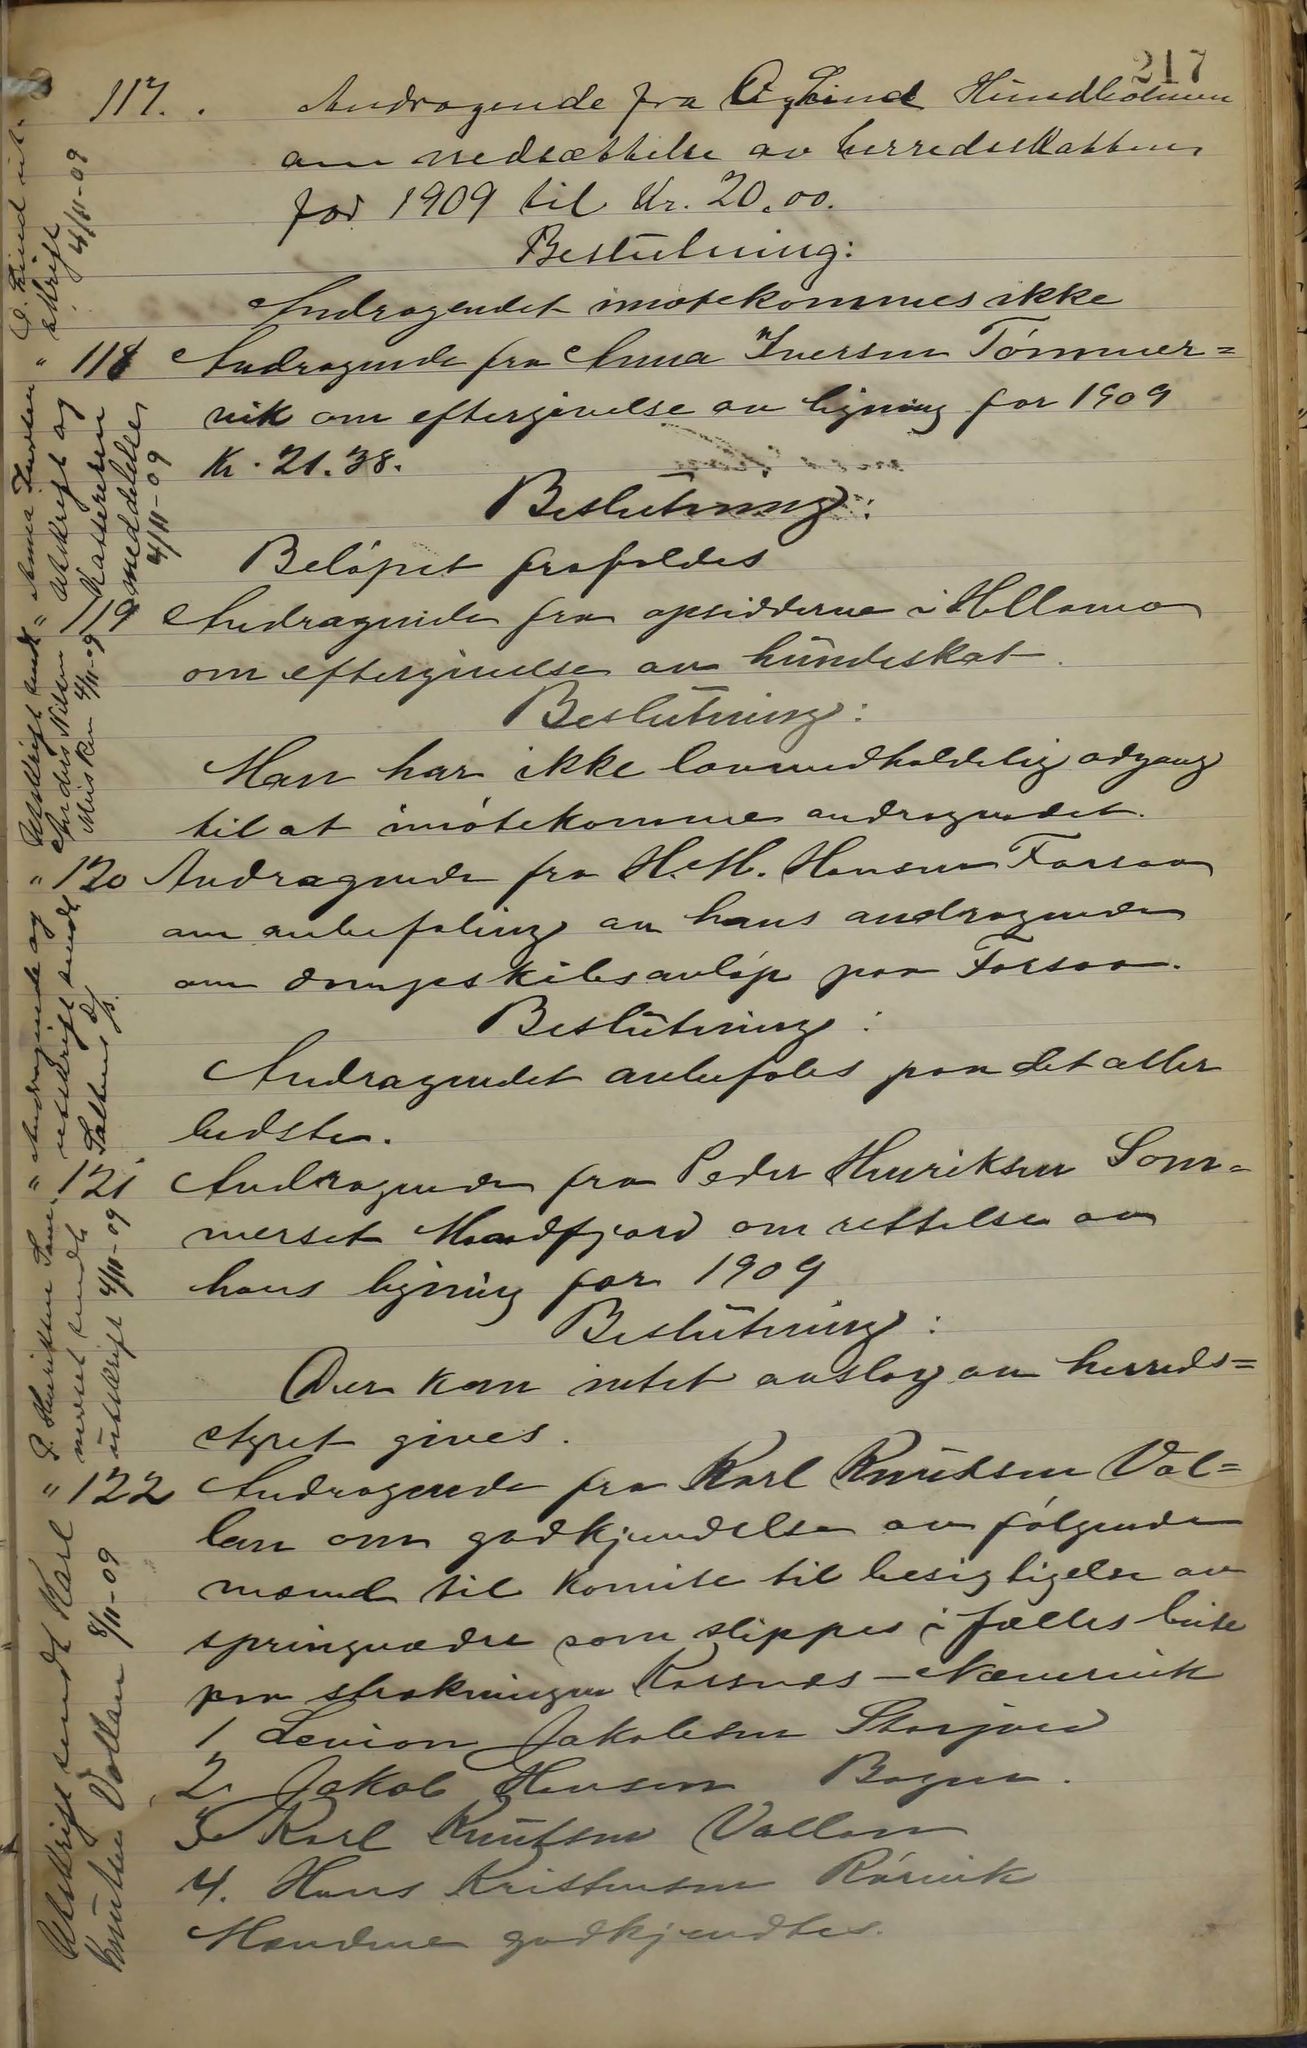 217
117. Andragende fra O. Lind Hundholmen
om nedsættelse av herredsskatten
for 1909 til Kr. 20.00.
Beslutning:
Andragendet imøtekommes ikke
118 Andragende fra Anna Iversen Tømmer=
vik om eftergivelse av ligning for 1909
Kr. 21.38.
Beslutning:
Beløpet frafaldes
119 Andragende fra opsidderne i Hellamo
om eftergivelse av hundeskat.
Beslutning:
Man har ikke lovmedholdelig adgang
til at imøtekomme andragendet.
" 120 Andragende fra H. M. Hansen Forsaa
om anbefaling av hans andragende
om dampskibsanløp paa Forsaa.
Beslutning:
Andragendet anbefales paa det aller
bedste.
" 121 Andragende fra Peder Henriksen Som=
merset Mandfjord om rettelse av
hans ligning for 1909
Beslutning:
Der kan intet avslag av herreds=
styret gives.
" 122 Andragende fra Karl Knutsen Val=
lan om godkjendelse av følgende
mænd til komite til besigtigelse av
springvædre som slippes i fælles beite
paa strækningen Korsnes - Nævervik
1 Levion Jakobsen Storjord
2. Jakob Hansen Bogen.
3 Karl Knutsen Vallan
4. Hans Kristensen Rørvik
Mændene godkjendtes.
O. Lind ut-
skrift 4/11-09
" Anna Iversen
utskrift og
Kassereren
meddelelse
4/11-09
Utskrift sendt
Anders Nilsen
Musken 4/11-09
Andragende og
utskrift sendt
Saltens D/s.
P. Henriksen Som-
merset sendt
utskrift 4/11-09
Utskrift sendt Karl
Knutsen Vallan 8/11-09